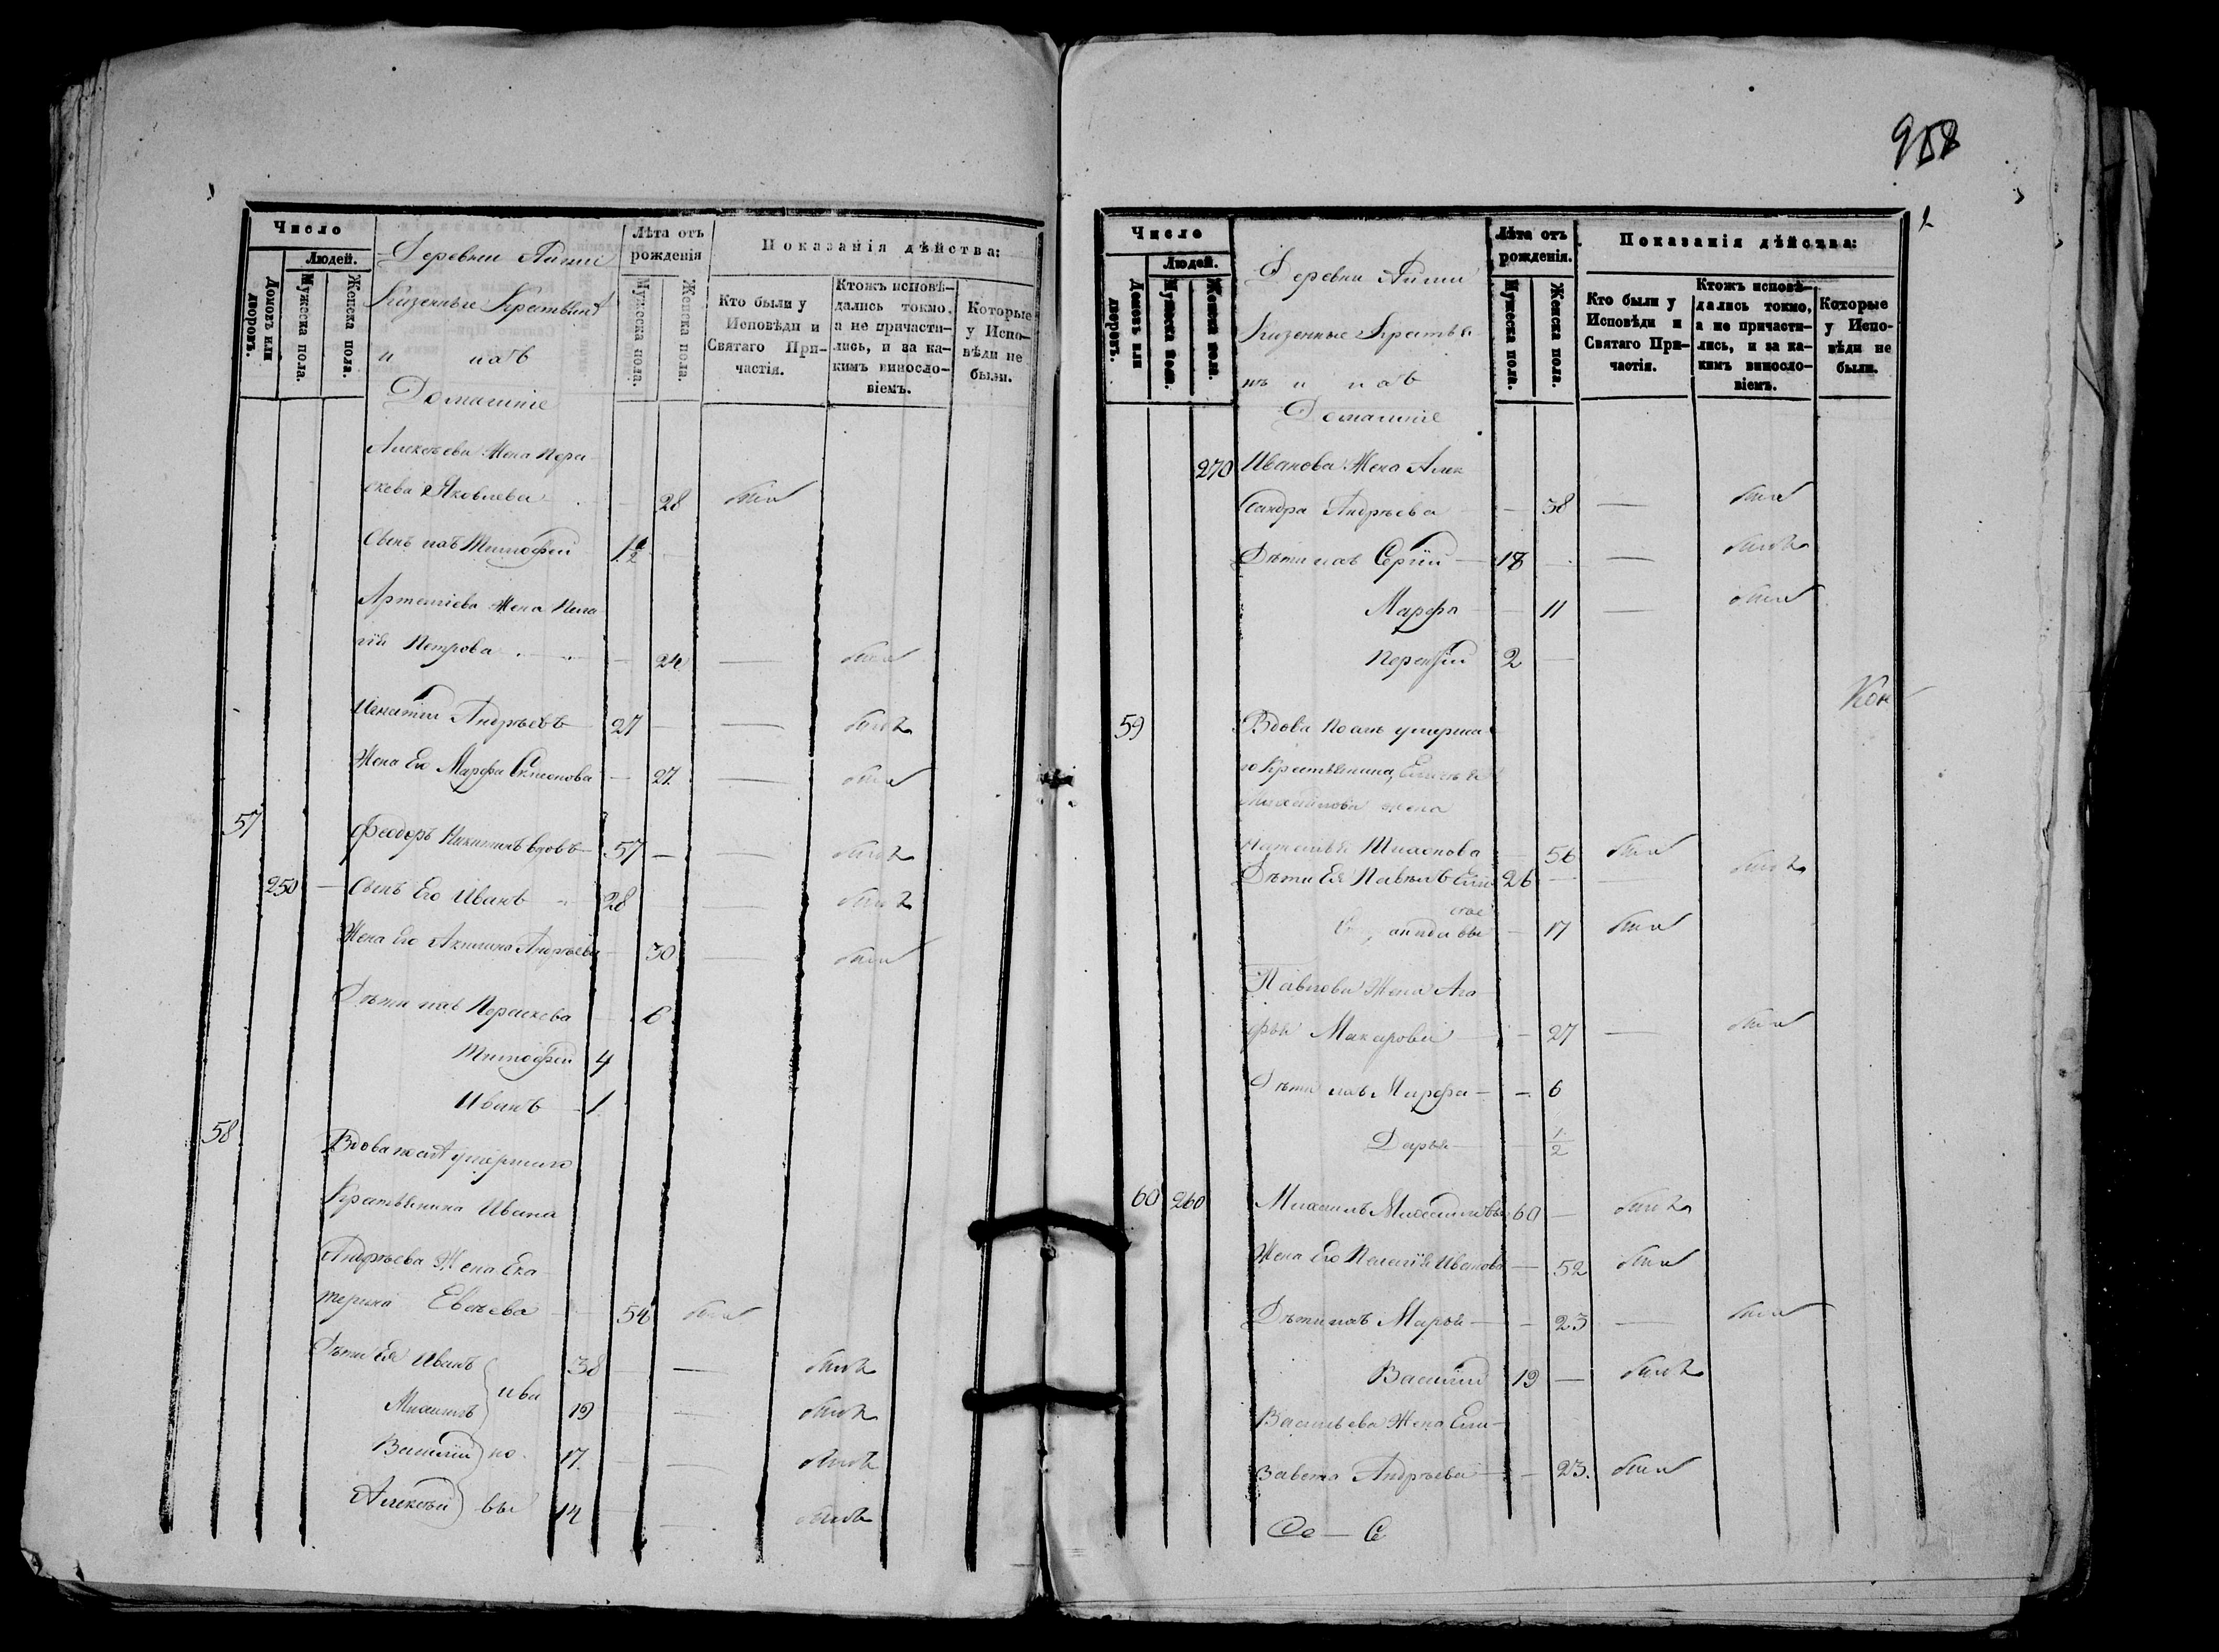 988
Число
Людей.
Домовъ или дворовъ.
Мужеска пола.
Женска пола.
Деревни
Казенные Крестьян
и ихъ
Домашніе
Лѣта отъ рожденія
Мужеска пола.
Женска пола.
Показанія дѣйства:
Кто были у
Исповѣди и
Святаго При-
частія.
Ктожъ исповѣ-
дались токмо,
а не причасти-
лись, и за ка-
кимъ виносло-
віемъ.
Которые
у Испо-
вѣди не
были.
Алексѣева Жена Пара
скева Яковлева - 28 была
Сынъ ихъ Тимофей 1/2 -
Артеміева Жена Пела
гія Петрова - 24 — была
Игнатій Андреѣвъ 27 - — былъ
Жена Его Марфа Семенова - 27 — была
57 Феодоръ Никитинъ вдовъ 57 - — былъ
250 Сынъ Его Иванъ 28 — былъ
Жена Его Акилина Андреѣва - 30 — была
Дѣти ихъ Параскева 6
Тимофей 4
Иванъ 1
58 Вдова послѣ умершаго
Крестьянина Ивана
Андреѣва Жена Ека
терина 54 была
Дѣти Ея Иванъ 38 — былъ
Ива
Михаилъ 19 — былъ
Василій но 17 — былъ
Алексѣй вы 14 былъ
Число
Людей.
Домовъ или дворовъ.
Мужеска пола.
Женска пола.
Деревни
Казенные Крестья
нѣ и ихъ
Домашніе
Лѣта отъ рожденія.
Мужеска пола.
Женска пола.
Показанія дѣйства:
Кто были у
Исповѣди и
Святаго При-
частія.
Ктожъ исповѣ-
дались токмо,
а не причасти-
лись, и за ка-
кимъ виносло-
віемъ.
Которые
у Испо-
вѣди не
были.
270 Иванова Жена Алек
сандра Андреѣва - 38 — была
Дѣти ихъ Сергій 18 — былъ
Марфа - 11 — была
2 -
59 Вдова послѣ умерша
го Крестьянина,
Михайлова жена
Наталья 56 была
Дѣти Ея Павелъ 26 - былъ
17 была
Павлова Жена Ага
фья Макарова - 27 — была
Дѣти ихъ Марфа - 6
Дарья - 1/2
60 260 Михаилъ Михайловъ 60 - былъ
Жена Его Пелагія Иванова - 52 была
Дѣти ихъ Марья - 23 — была
Василій 19 - былъ
Васильева Жена Ели-
завета Андреѣва - 23. была